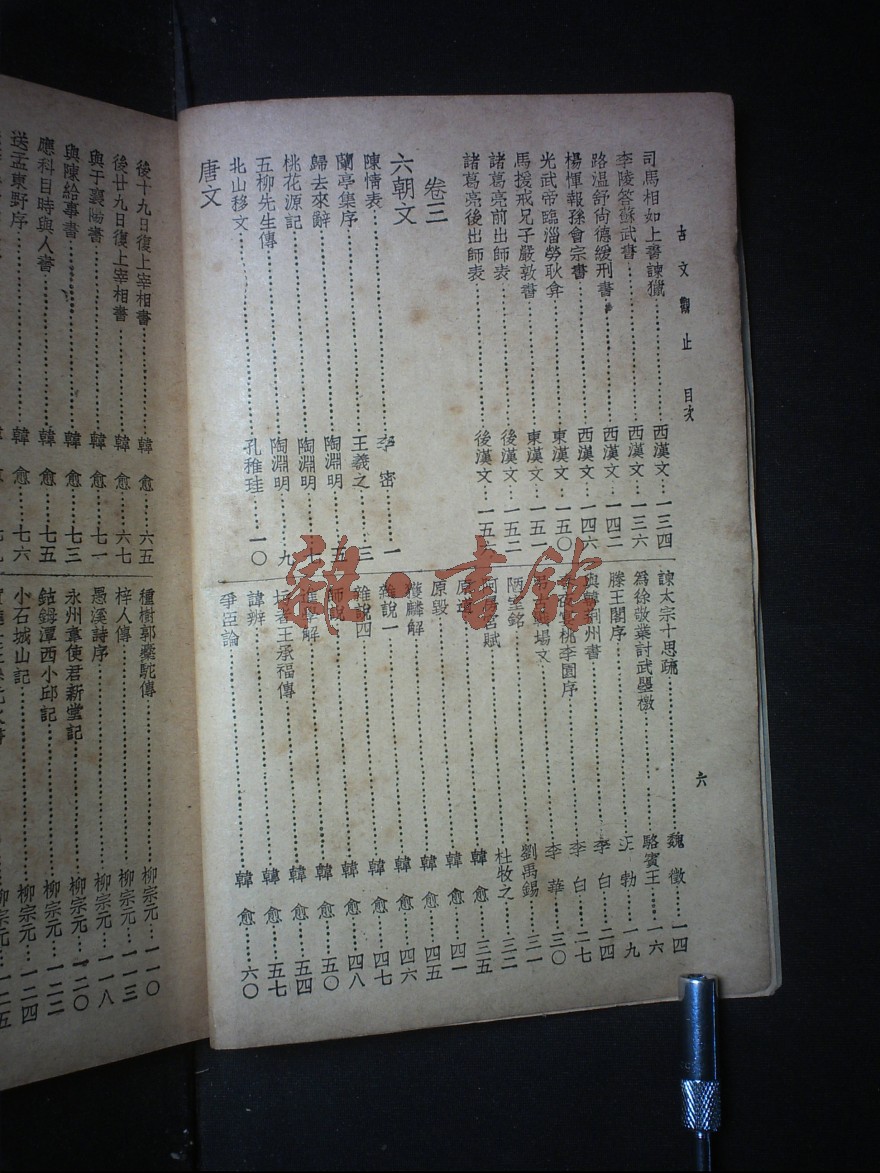 古文觀止 目次
六
司馬相如上書諫獵 西漢文 一三四
李陵答蘇武書 西漢文 一三六
路溫舒尚德緩刑書 西漢文 一四二
楊惲報孫會宗書 西漢文 一四六
光武帝臨淄勞耿弇 東漢文 一五〇
馬援戒兄子嚴敦書 東漢文 一五一
諸葛亮前出師表 後漢文 一五二
諸葛亮後出師表 後漢文 一五六
卷三
六朝文
陳情表 李密 一
蘭亭集序 王羲之 三
歸去來辭 陶淵明 五
桃花源記 陶淵明 七
五柳先生傳 陶淵明 九
北山移文 孔稚珪 一〇
唐文
諫太宗十思疏 魏徵 一四
為徐敬業討武曌檄 駱賓王 一六
滕王閣序 王勃 一九
與韓荊州書 李白 二四
桃李園序 李白 二七
戰場文 李華 三〇
陋室銘 劉禹錫 三一
阿房宮賦 杜牧之 三二
原道 韓愈 三五
原毀 韓愈 四一
獲麟解 韓愈 四五
雜說一 韓愈 四六
雜說四 韓愈 四七
師說 韓愈 四八
進學解 韓愈 五〇
圬者王承福傳 韓愈 五四
諱辨 韓愈 五七
爭臣論 韓愈 六〇
雜·書館
後十九日復上宰相書 韓愈 六五
後廿九日復上宰相書 韓愈 六七
與于襄陽書 韓愈 七一
與陳給事書 韓愈 七三
應科目時與人書 韓愈 七五
送孟東野序 韓愈 七六
種樹郭橐駝傳 柳宗元 一一〇
梓人傳 柳宗元 一一三
愚溪詩序 柳宗元 一一八
永州韋使君新堂記 柳宗元 一二〇
鈷鉧潭西小邱記 柳宗元 一二二
小石城山記 柳宗元 一二四
柳宗元 一二五